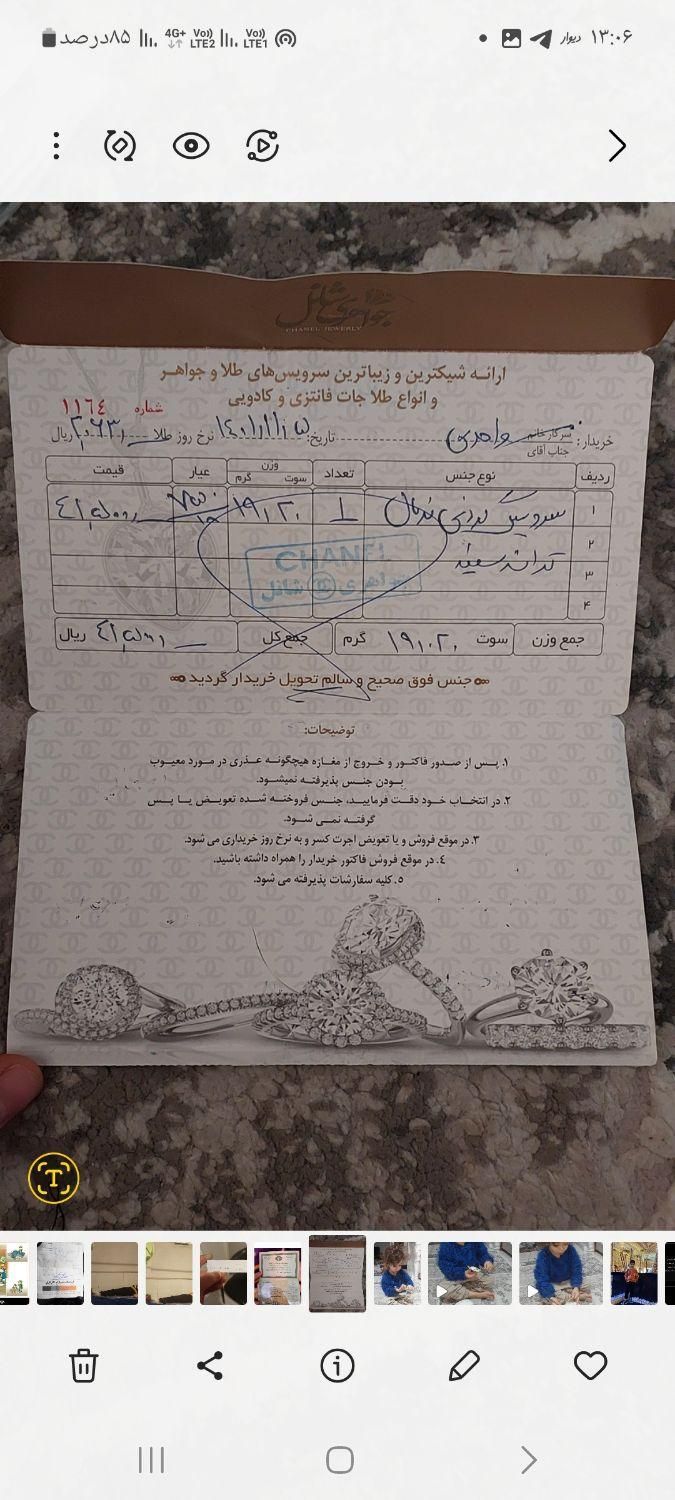 ۸۵درصد
4G+
Vo)) LTE2
Vo)) LTE1
دیوار
۱۳:۰۶
جواهری شانل
CHANEL JEWERLY
ارائه شیکترین و زیباترین سرویس‌های طلا و جواهر
و انواع طلا جات فانتزی و کادویی
شماره ١١٦٤
خریدار: سرکار خانم
جناب آقای
تاریخ:
نرخ روز طلا
ریال
ردیف نوع جنس تعداد وزن سوت گرم عیار قیمت
۱ سرویس ۱ ۱۹٫۰۲۰
۲ سفید
۳
۴
CHANEL
جواهری شانل
جمع وزن سوت ۱۹٫۰۲۰ گرم جمع کل ریال
جنس فوق صحیح و سالم تحویل خریدار گردید
توضیحات:
۱. پس از صدور فاکتور و خروج از مغازه هیچگونه عذری در مورد معیوب
بودن جنس پذیرفته نمیشود.
۲. در انتخاب خود دقت فرمایید، جنس فروخته شده تعویض یا پس
گرفته نمی شود.
۳. در موقع فروش و یا تعویض اجرت کسر و به نرخ روز خریداری می شود.
٤. در موقع فروش فاکتور خریدار را همراه داشته باشید.
۵. کلیه سفارشات پذیرفته می شود.
T